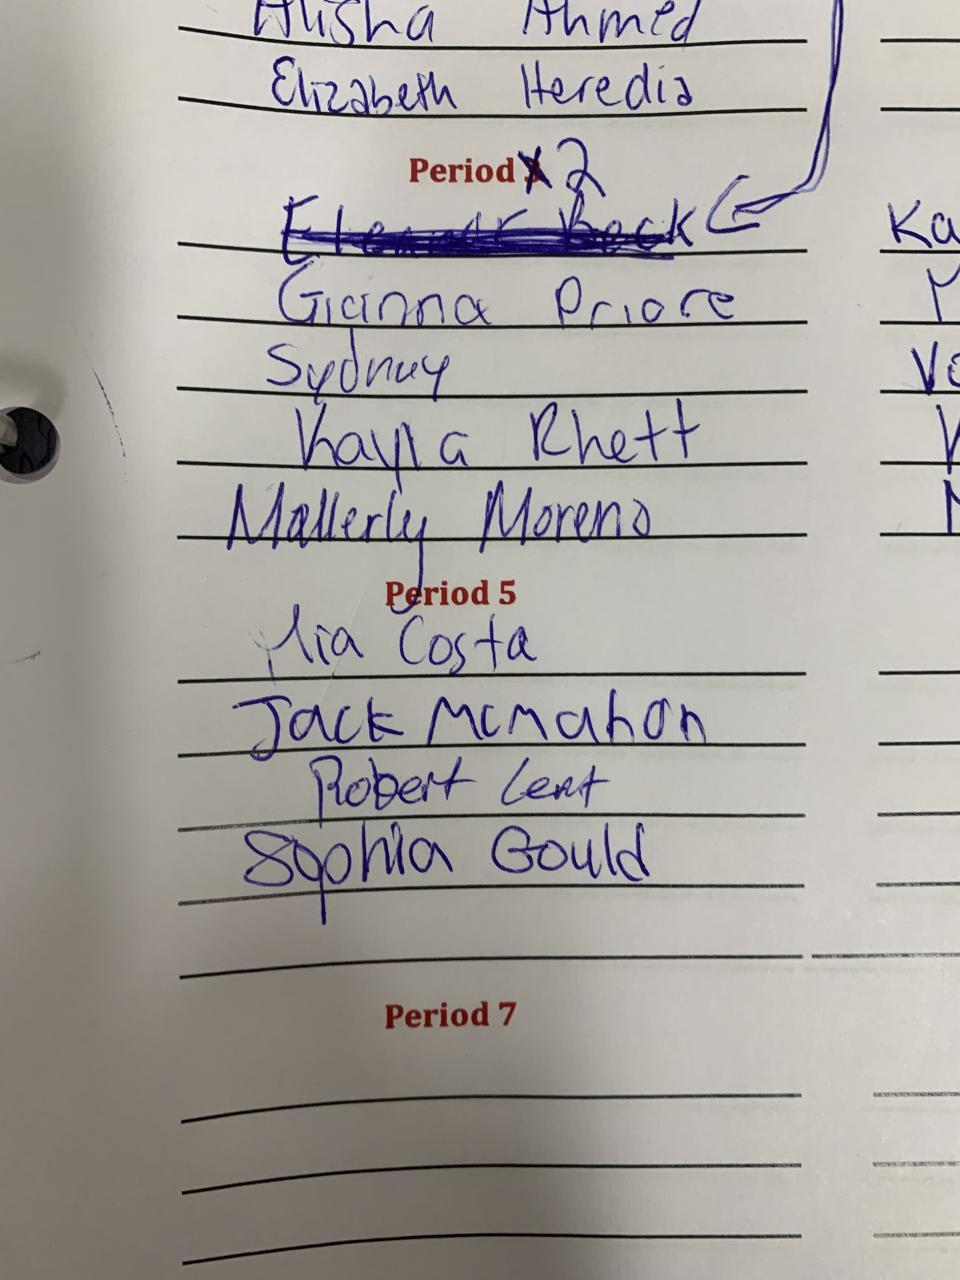 Alisha Ahmed
Elizabeth Heredia
Period 2
Beck
Ka
Gianna Priore
Sydney
Vo
Kayla Rhett
Mallerly Moreno
Period 5
Mia Costa
Jack McMahon
Robert Lent
Sophia Gould
Period 7